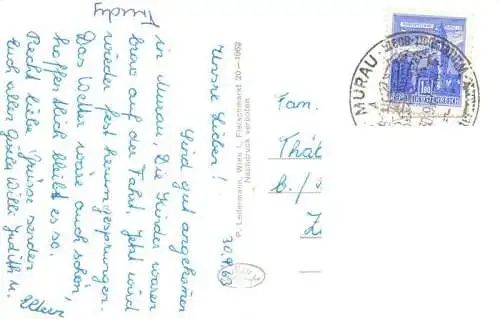 30.9.63
Unsre Lieben!
Sind gut angekommen
in Murau, Die Kinder waren
brav auf der Fahrt. Jetzt wird
wieder fest herumgesprungen.
Das Wetter wäre auch schön,
hoffentlich bleibt es so.
Recht liebe Grüsse senden
Euch allen Gucki Willi Judith u.
Trudy
P. Ledermann, Wien I, Fleischmarkt 20 — 1962
Nachdruck verboten
Fam.
Thäl
B./
Z
MURAU
1.80
REPUBLIK ÖSTERREICH